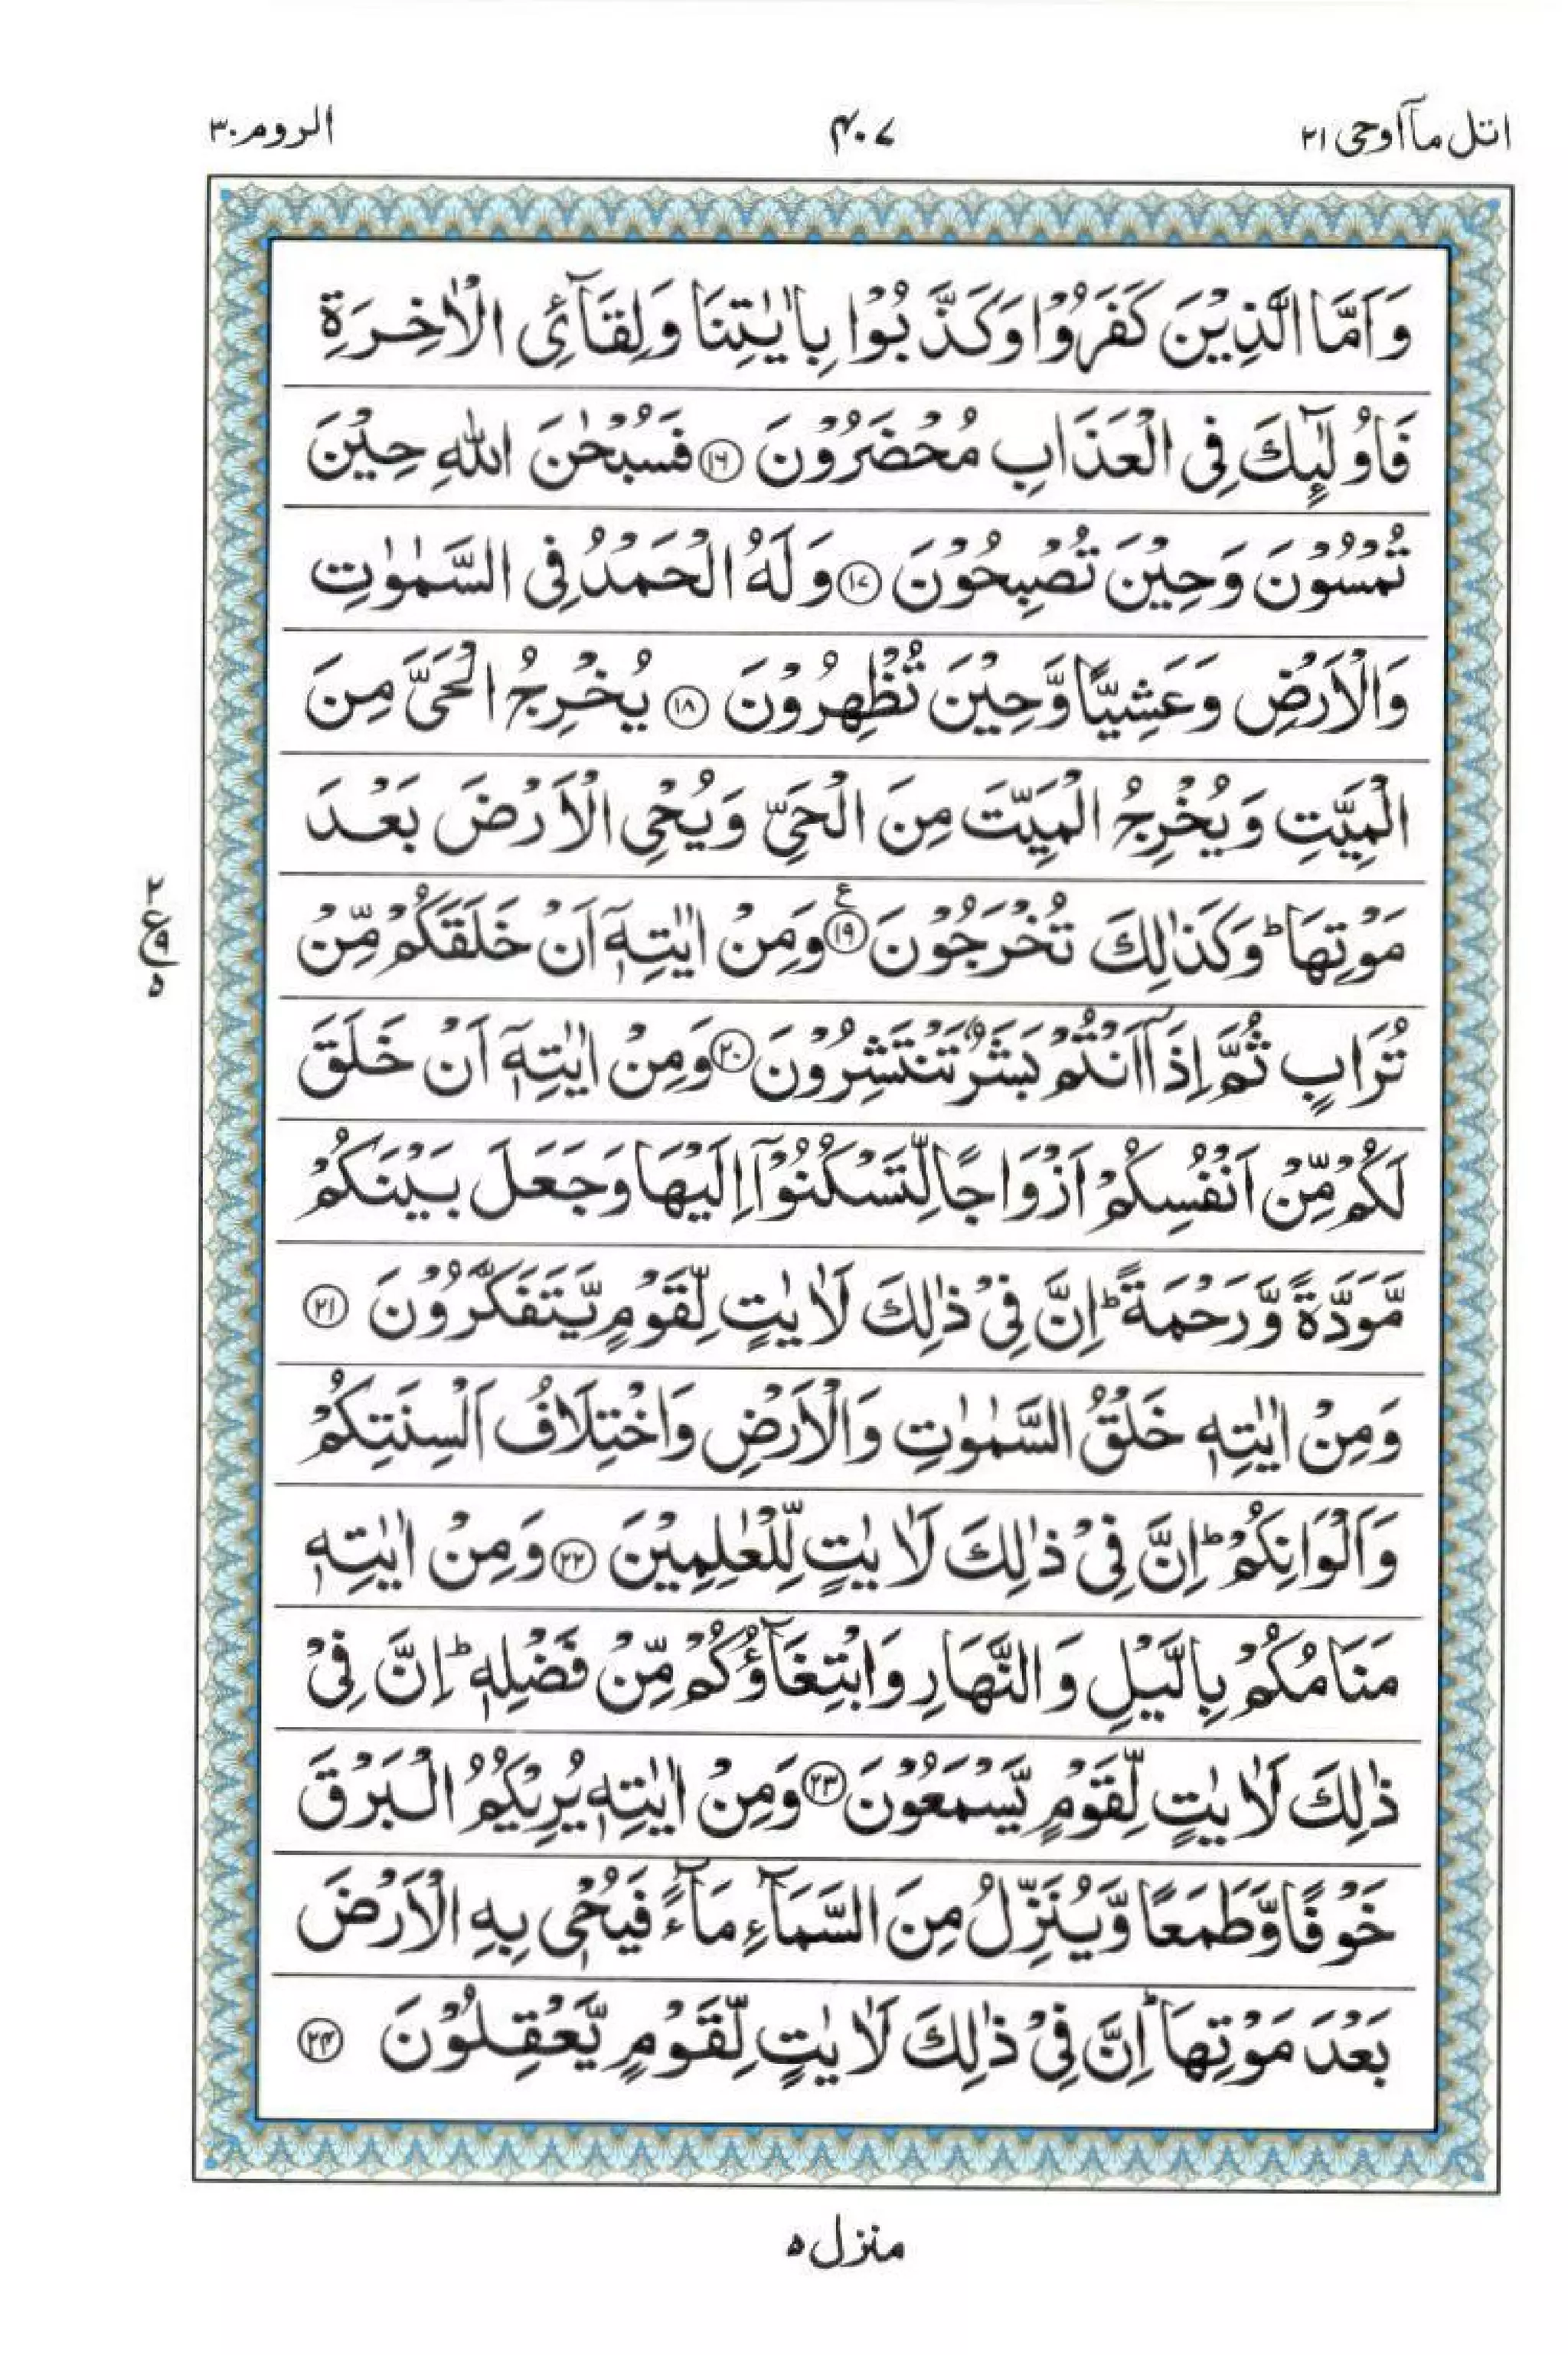 اتل مآ اوحی ۲۱
۴۰۷
الروم ۳۰
وَاَمَّا الَّذِيْنَ كَفَرُوْا وَكَذَّبُوْا بِاٰيٰتِنَا وَلِقَآئِ الْاٰخِرَةِ
فَاُولٰٓئِكَ فِى الْعَذَابِ مُحْضَرُوْنَ ۝۱۶ فَسُبْحٰنَ اللّٰهِ حِيْنَ
تُمْسُوْنَ وَحِيْنَ تُصْبِحُوْنَ ۝۱۷ وَلَهُ الْحَمْدُ فِى السَّمٰوٰتِ
وَالْاَرْضِ وَعَشِيًّا وَّحِيْنَ تُظْهِرُوْنَ ۝۱۸ يُخْرِجُ الْحَىَّ مِنَ
الْمَيِّتِ وَيُخْرِجُ الْمَيِّتَ مِنَ الْحَىِّ وَيُحْىِ الْاَرْضَ بَعْدَ
مَوْتِهَا ؕ وَكَذٰلِكَ تُخْرَجُوْنَ ۝۱۹ ع وَمِنْ اٰيٰتِهٖۤ اَنْ خَلَقَكُمْ مِّنْ
تُرَابٍ ثُمَّ اِذَاۤ اَنْتُمْ بَشَرٌ تَنْتَشِرُوْنَ ۝۲۰ وَمِنْ اٰيٰتِهٖۤ اَنْ خَلَقَ
لَكُمْ مِّنْ اَنْفُسِكُمْ اَزْوَاجًا لِّتَسْكُنُوْۤا اِلَيْهَا وَجَعَلَ بَيْنَكُمْ
مَّوَدَّةً وَّرَحْمَةً ؕ اِنَّ فِىْ ذٰلِكَ لَاٰيٰتٍ لِّقَوْمٍ يَّتَفَكَّرُوْنَ ۝۲۱
وَمِنْ اٰيٰتِهٖ خَلْقُ السَّمٰوٰتِ وَالْاَرْضِ وَاخْتِلَافُ اَلْسِنَتِكُمْ
وَاَلْوَانِكُمْ ؕ اِنَّ فِىْ ذٰلِكَ لَاٰيٰتٍ لِّلْعٰلِمِيْنَ ۝۲۲ وَمِنْ اٰيٰتِهٖ
مَنَامُكُمْ بِالَّيْلِ وَالنَّهَارِ وَابْتِغَآؤُكُمْ مِّنْ فَضْلِهٖ ؕ اِنَّ فِىْ
ذٰلِكَ لَاٰيٰتٍ لِّقَوْمٍ يَّسْمَعُوْنَ ۝۲۳ وَمِنْ اٰيٰتِهٖ يُرِيْكُمُ الْبَرْقَ
خَوْفًا وَّطَمَعًا وَّيُنَزِّلُ مِنَ السَّمَآءِ مَآءً فَيُحْىٖ بِهِ الْاَرْضَ
بَعْدَ مَوْتِهَا ؕ اِنَّ فِىْ ذٰلِكَ لَاٰيٰتٍ لِّقَوْمٍ يَّعْقِلُوْنَ ۝۲۴
۲
ع ۹
۵
منزل ۵